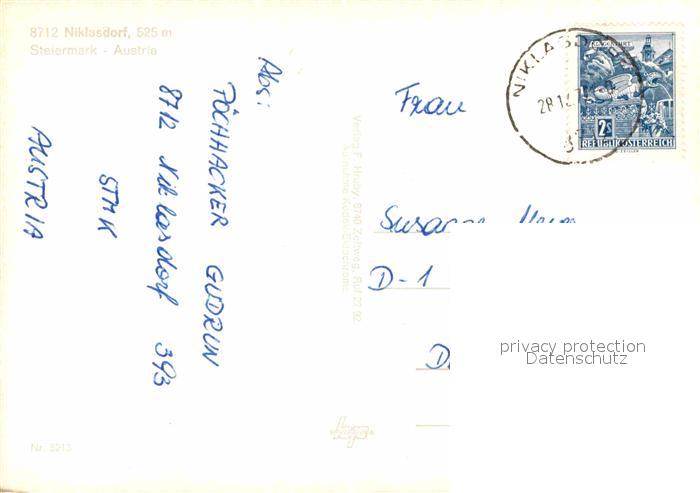 8712 Niklasdorf, 525 m
Steiermark - Austria
Abs:
PÖCHHACKER GUDRUN
8712 Niklasdorf 393
STMK
AUSTRIA
Nr. 5213
Verlag F. Hruby, 8740 Zeltweg, Ruf 22 92
Aufnahme Kodak-Ektachrome
NIKLASD
28.12.
2S
REPUBLIK ÖSTERREICH
Frau
D-1
D.
privacy protection
Datenschutz